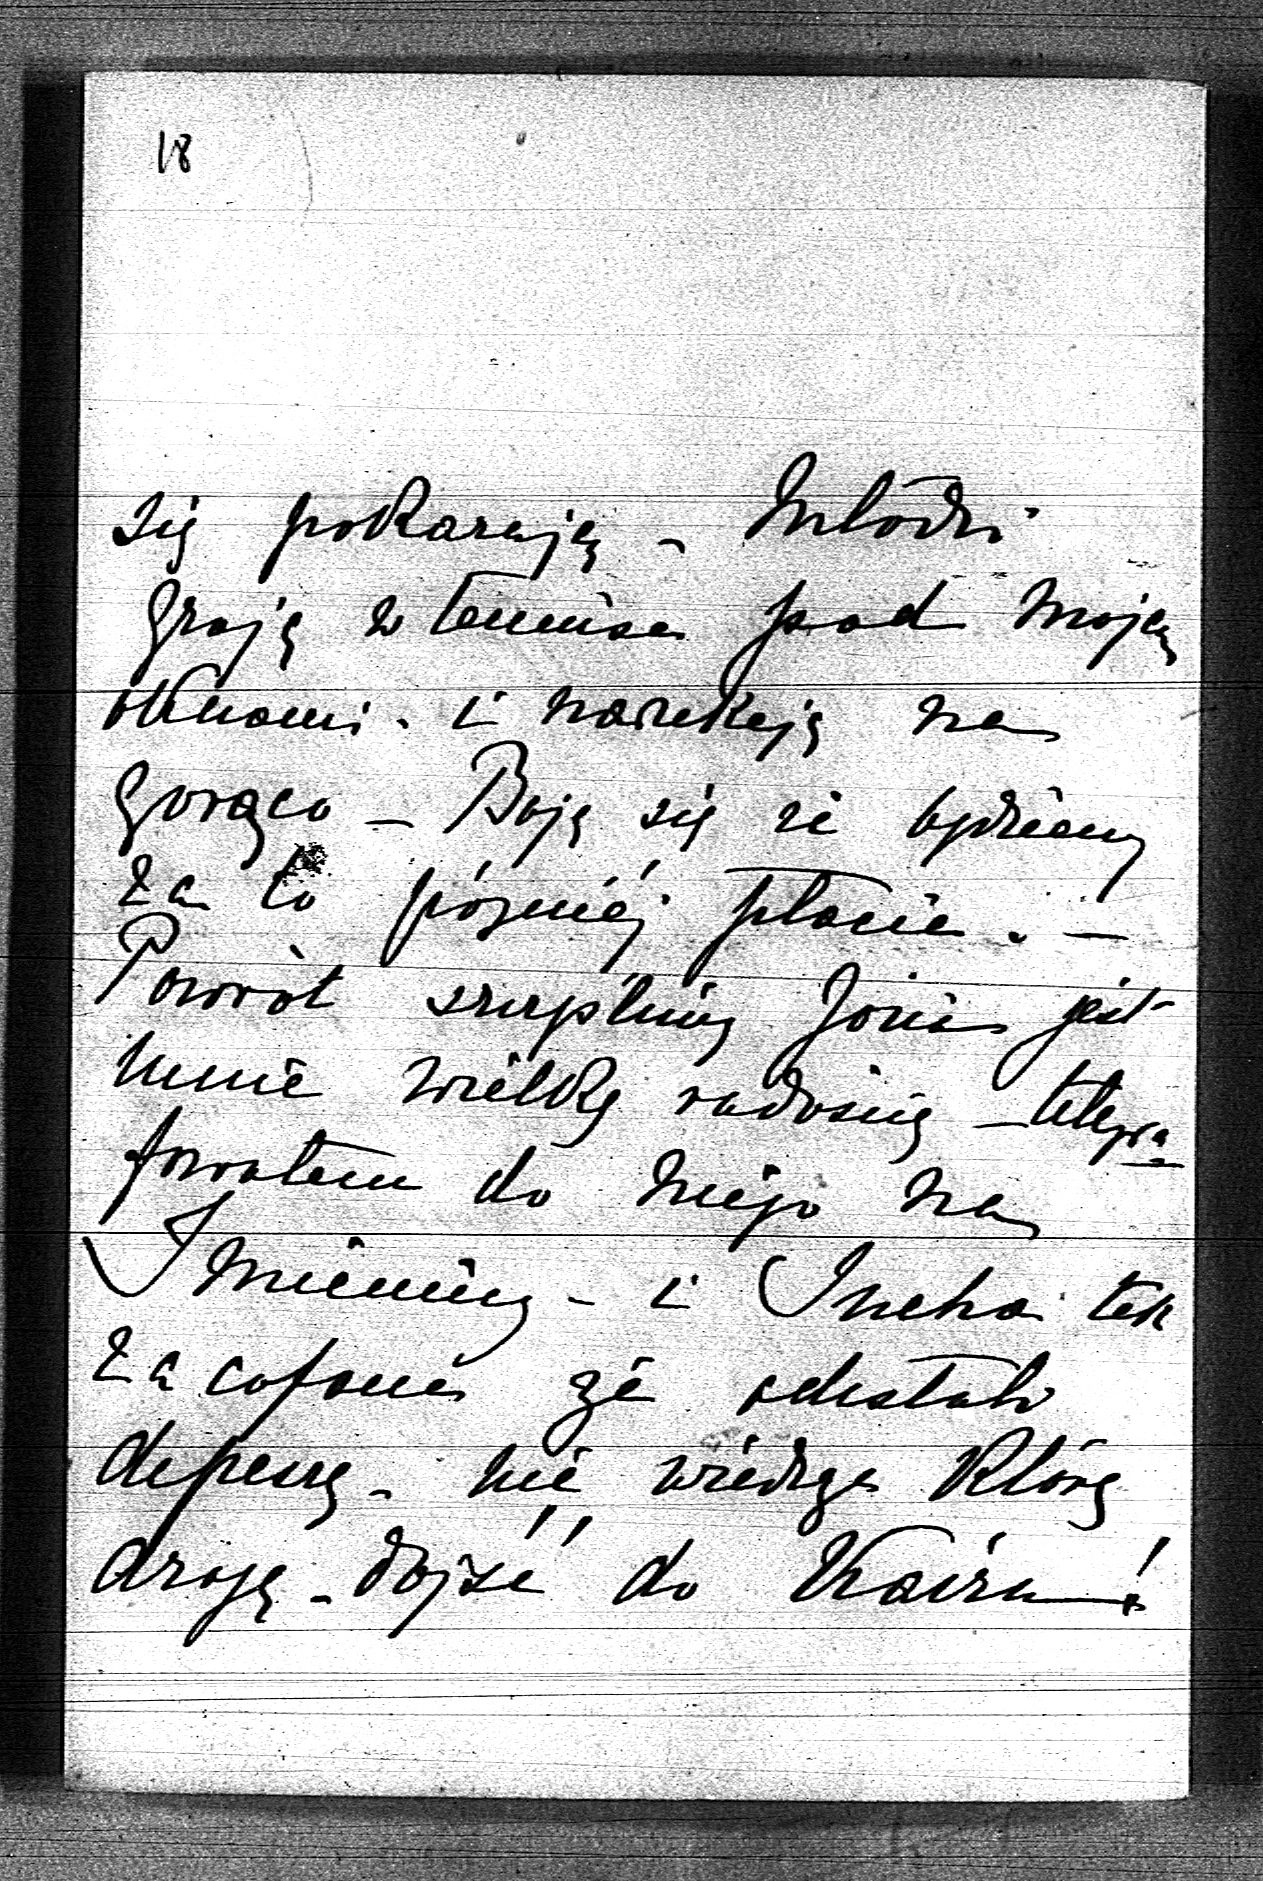 18
się pokazują - Młodzi
grają w tennisa pod mojem
oknami - i narzekają na
gorąco - Boję się że będziemy
za to późniéj płacić. -
Powrót szczęśliwy Józia jest
mnie wielką radością - telegra
fowałem do niego na
Imieniny - i Sucha tak
zacofana że odesłała
depeszę - nie wiedząc którą
drogą - dojść do Kairu!